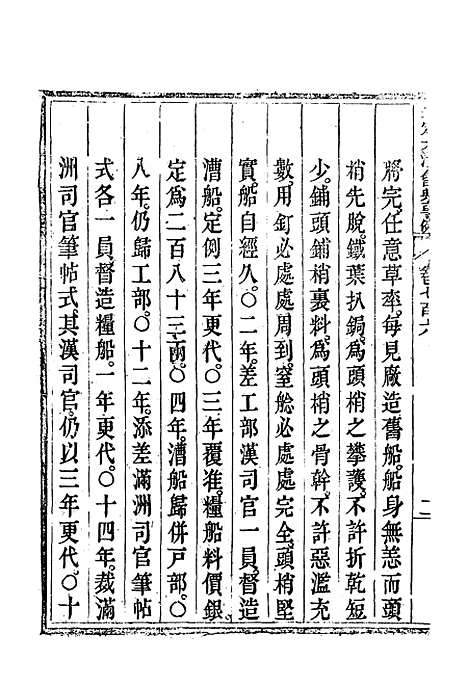 將完任意草率。每見廠造舊船。船身無恙而頭
梢先脫。鐵葉扒鋦。為頭梢之攀護。不許折乾短
少。鋪頭鋪梢裏料。為頭梢之骨幹。不許惡濫充
數。用釘必處處周到。窒艌必處處完全。頭梢堅
實。船自經久。〇二年。差工部漢司官一員。督造
漕船。定例三年更代。〇三年覆准。糧船料價銀
定為二百八十三兩。〇四年。漕船歸併戶部。〇
八年。仍歸工部。〇十二年。添差滿洲司官筆帖
式各一員。督造糧船。一年更代。〇十四年。裁滿
洲司官筆帖式。其漢司官。仍以三年更代。〇十
二